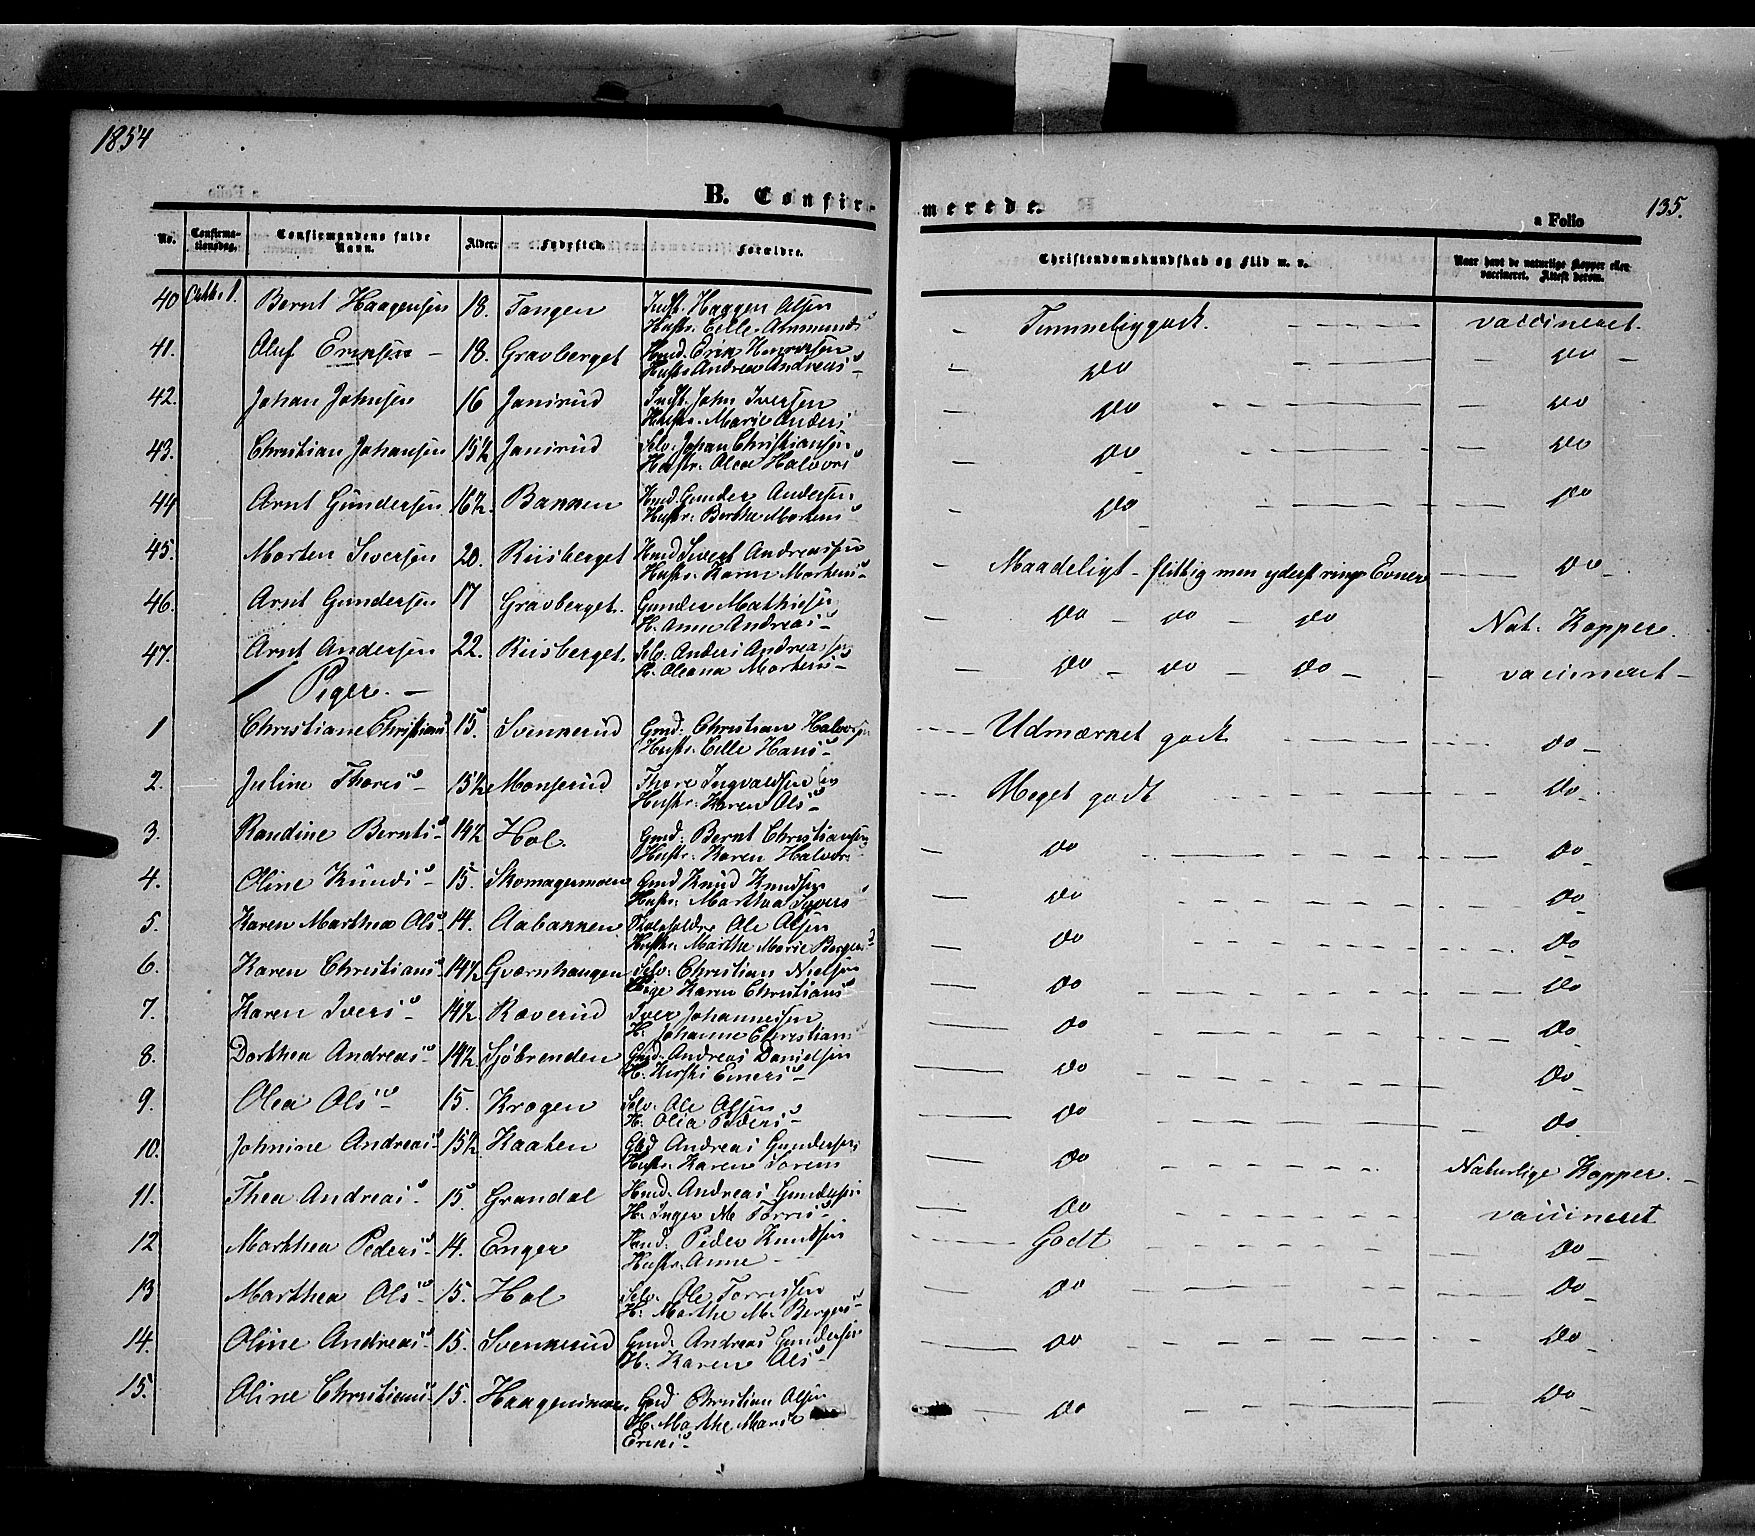 1854
B. Confir-
merede.
a Folio
135.
No.
Confirma-
tionsdag.
Confirmandens fulde
Navn.
Alder.
Fødested.
Forældre.
Christendomskundskab og Flid m. v.
Naar havt de naturlige Kopper eller
vaccineret. Attest derom.
40 Octbr 1. Bernt Haagensen 18. Tangen Indst. Haagen Olsen - Temmelig godt. vaccineret.
Hustr. Eelle Ammunds
41. Oluf Eriksen - 18. Gravberget Hmd. Erik - Do - Do -
Hustr. Andrea Andreas -
42. Johan Johnsen 16 Janirud Indst. John Iversen - Do - Do
Hustr. Marie Anders
43. Christian Johansen 15½ Janirud Selv. Johan Christiansen - Do - Do
Hustr. Olea Halvors
44 Arnt Gundersen 16½. Bakken Hmd. Gunder Andersen - Do - Do
Hustr. Berthe Mortens
45. Morten Sversen 20. Riisberget Hmd Svert Andreassen - Maadeligt - flittig men yderst ringe Evner - Do -
Hustr. Karen Mortens -
46. Arnt Gundersen 17 Gravberget. Gunder Mathiesen - Do - Do - Do Nat. Kopper.
H. Anne Andreas -
47. Arnt Andersen 22. Riisberget. Selv. Anders Andreassen - Do - Do - Do - vaccineret -
H. Oleana Mortens -
Piger. -
1 Christiane Christians 15. Svenkerud Gmd. Christian Halvorsen Udmærket godt Do -
Hustr. Eelle Hans -
2. Juline Thores - 15½ Monserud Thore Ingvaldsen Meget godt Do -
Hustr. Karen Ols -
3. Randine Bernts - 14½ Hol. Gmd. Bernt Christiansen - Do Do
Hustr. Karen Halvors
4. Oline Knuds - 15. Skomagermoen Gmd Knud Knudsen - Do Do
Hustr. Marthea Ivers
5. Karen Marthea Ols 14. Aabakken Ole Olsen Do Do
Hustr. Marthe Marie Berger
6. Karen Christians 14½ Gværnhaugen Selv. Christian Nielsen - Do Do
Pige Karen Christians
7. Karen Ivers 14½ Ræverud Iver Johannessen - Do Do
H. Johanne Christians
8. Dorthea Andreas - 14½ Sjøbrenden Gmd. Andreas Danielsen - Do Do -
H. Kersti Einers -
9. Olea Ols - 15. Krogen Selv. Ole Olsen - Do Do
H. Olia Peders -
10. Johnine Andreas 15½ Kaaten Gmd Andreas Gundersen - Do Naturlige Kopper. -
Hustr. Karen Sørens
11. Thea Andreas - 15. Grandal Hmd. Andreas Gundersen - Do vaccineret
H. Inger M. Torris -
12 Marthea Peders 14. Enger Hmd. Peder Knudsen Godt Do -
Hustr. Anne -
13 Marthea Ols - 15. Hol Selv. Ole Torrissen - Do Do -
H. Marthe M. Bergers -
14. Oline Andreas 15. Svenkerud Gmd. Andreas Gundersen - Do Do -
H. Karen Ols -
15. Oline Christians - 15. Haagensmoen. Gmd Christian Olsen - Do Do -
H. Marthe Marie
Eriks -